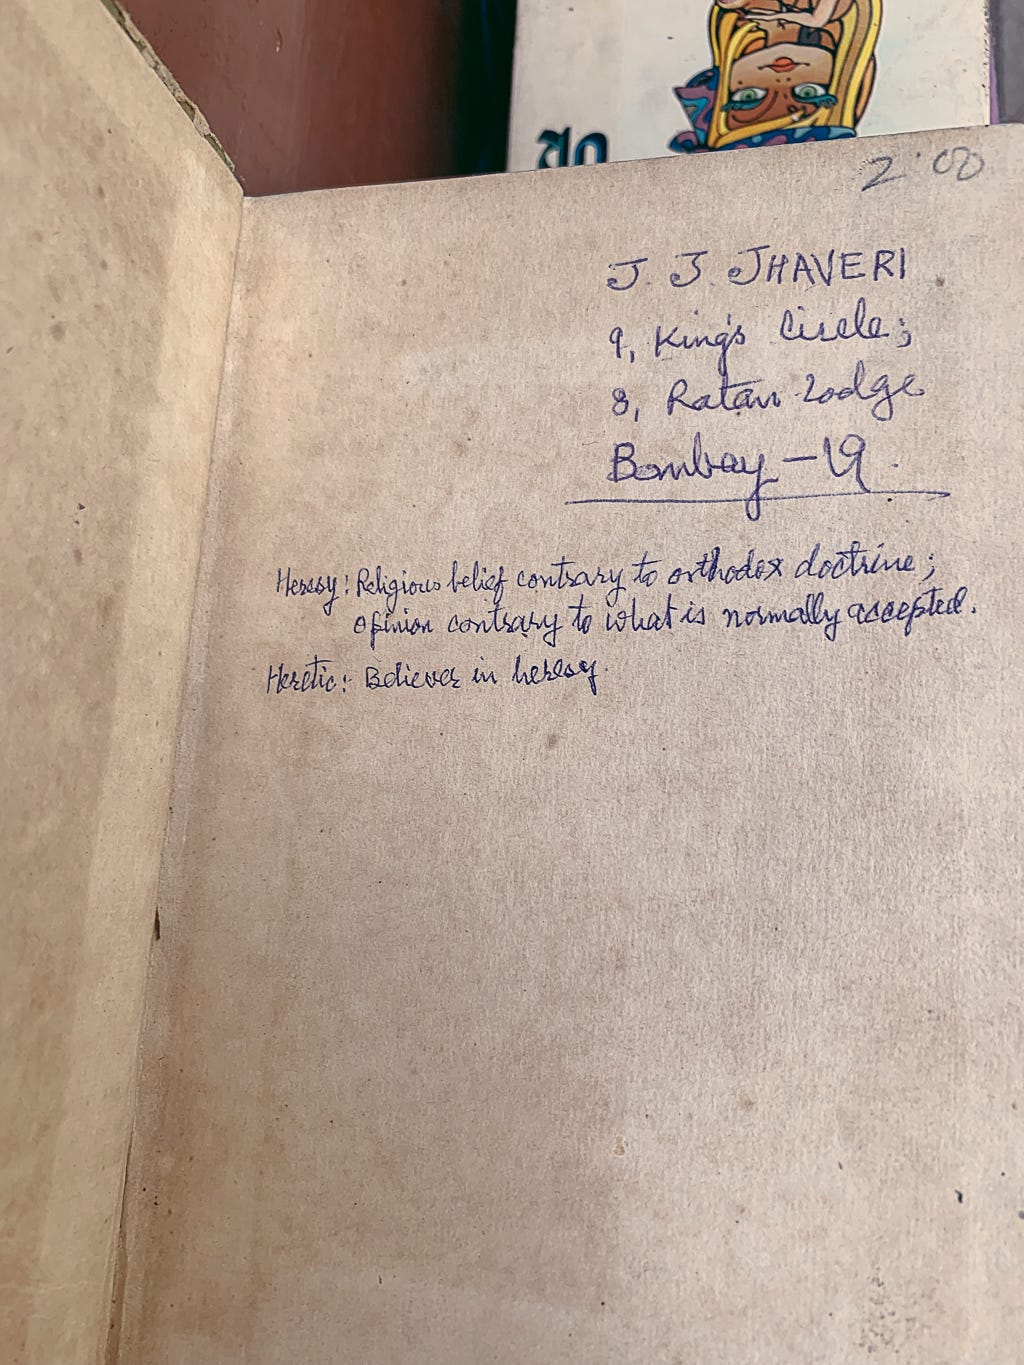 2.00
J. J. JHAVERI
9, King's Circle;
8, Ratan Lodge
Bombay - 19.
Heresy: Religious belief contrary to orthodox doctrine;
opinion contrary to what is normally accepted.
Heretic: Believer in heresy.